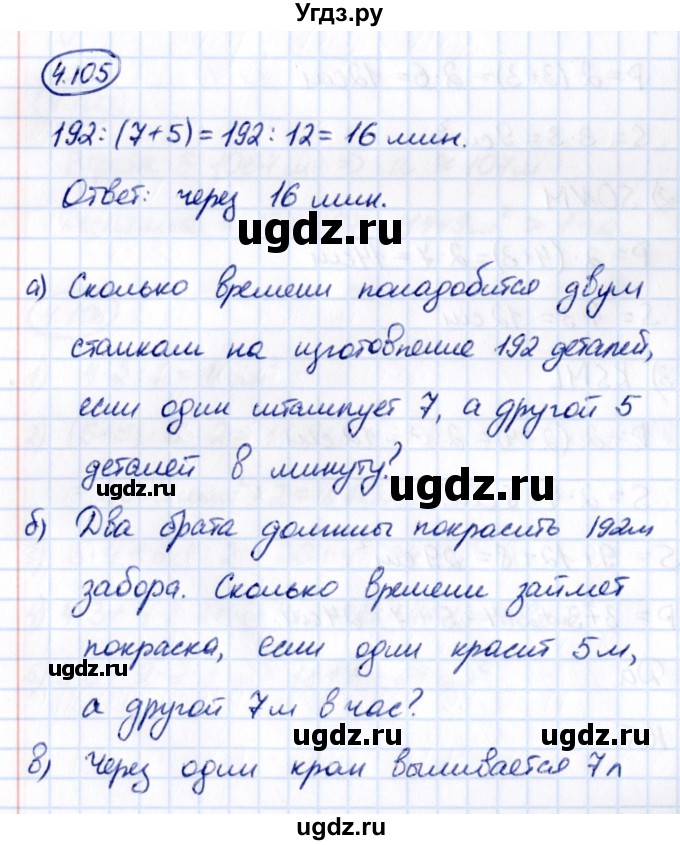 Угдз.ру
4.105
192 : (7+5) = 192 : 12 = 16 мин.
Ответ: через 16 мин.
ugdz.ru
а) Сколько времени понадобится двум
станкам на изготовление 192 деталей,
если один штампует 7, а другой 5
деталей в минуту?
ugdz.ru
ugdz.ru
б) Два брата должны покрасить 192м
забора. Сколько времени займет
покраска, если один красит 5м,
ugdz.ru
а другой 7м в час?
ugdz.ru
в) Через один кран выливается 7л
ugdz.ru